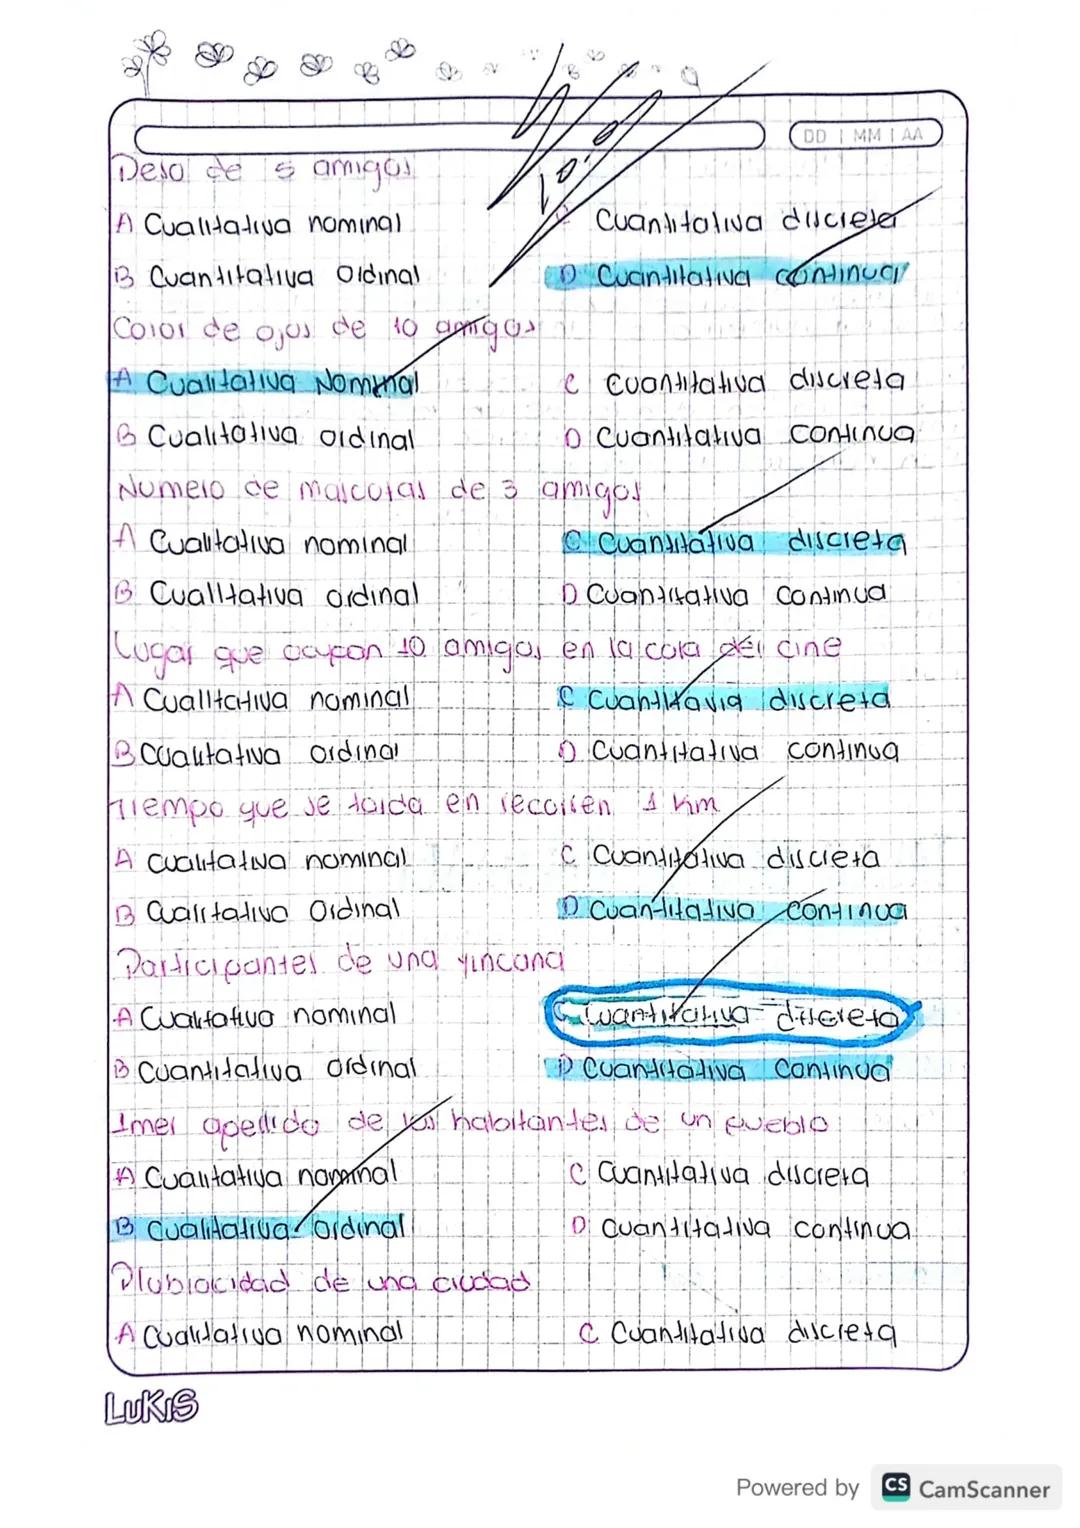 10.0
DD | MM | AA
Peso de 5 amigos
A Cualitativa nominal C Cuantitativa discreta
B Cuantitativa Ordinal D Cuantitativa continua
Color de ojos de 10 amigos
A Cualitativa Nominal C cuantitativa discreta
B Cualitativa ordinal D Cuantitativa continua
Numero de mascotas de 3 amigos
A Cualitativa nominal C Cuantitativa discreta
B Cualitativa ordinal D Cuantitativa Continua
Lugar que ocupan 10 amigos en la cola del cine
A Cualitativa nominal C Cuantitavia discreta
B Cualitativa ordinal D Cuantitativa continua
Tiempo que se tarda en recorren 1 Km
A cualitativa nominal C Cuantitativa discreta
B Cualitativa Ordinal D Cuantitativa continua
Participantes de una yincana
A Cualitativa nominal C Cuantitativa discreta
B Cuantitativa ordinal D Cuantitativa Continua
1mer apedido de los habitantes de un pueblo
A Cualitativa nominal C Cuantitativa discreta
B Cualitativa ordinal D Cuantitativa continua
Plubiocidad de una ciudad
A Cualitativa nominal C Cuantitativa discreta
LUKIS
Powered by CS CamScanner